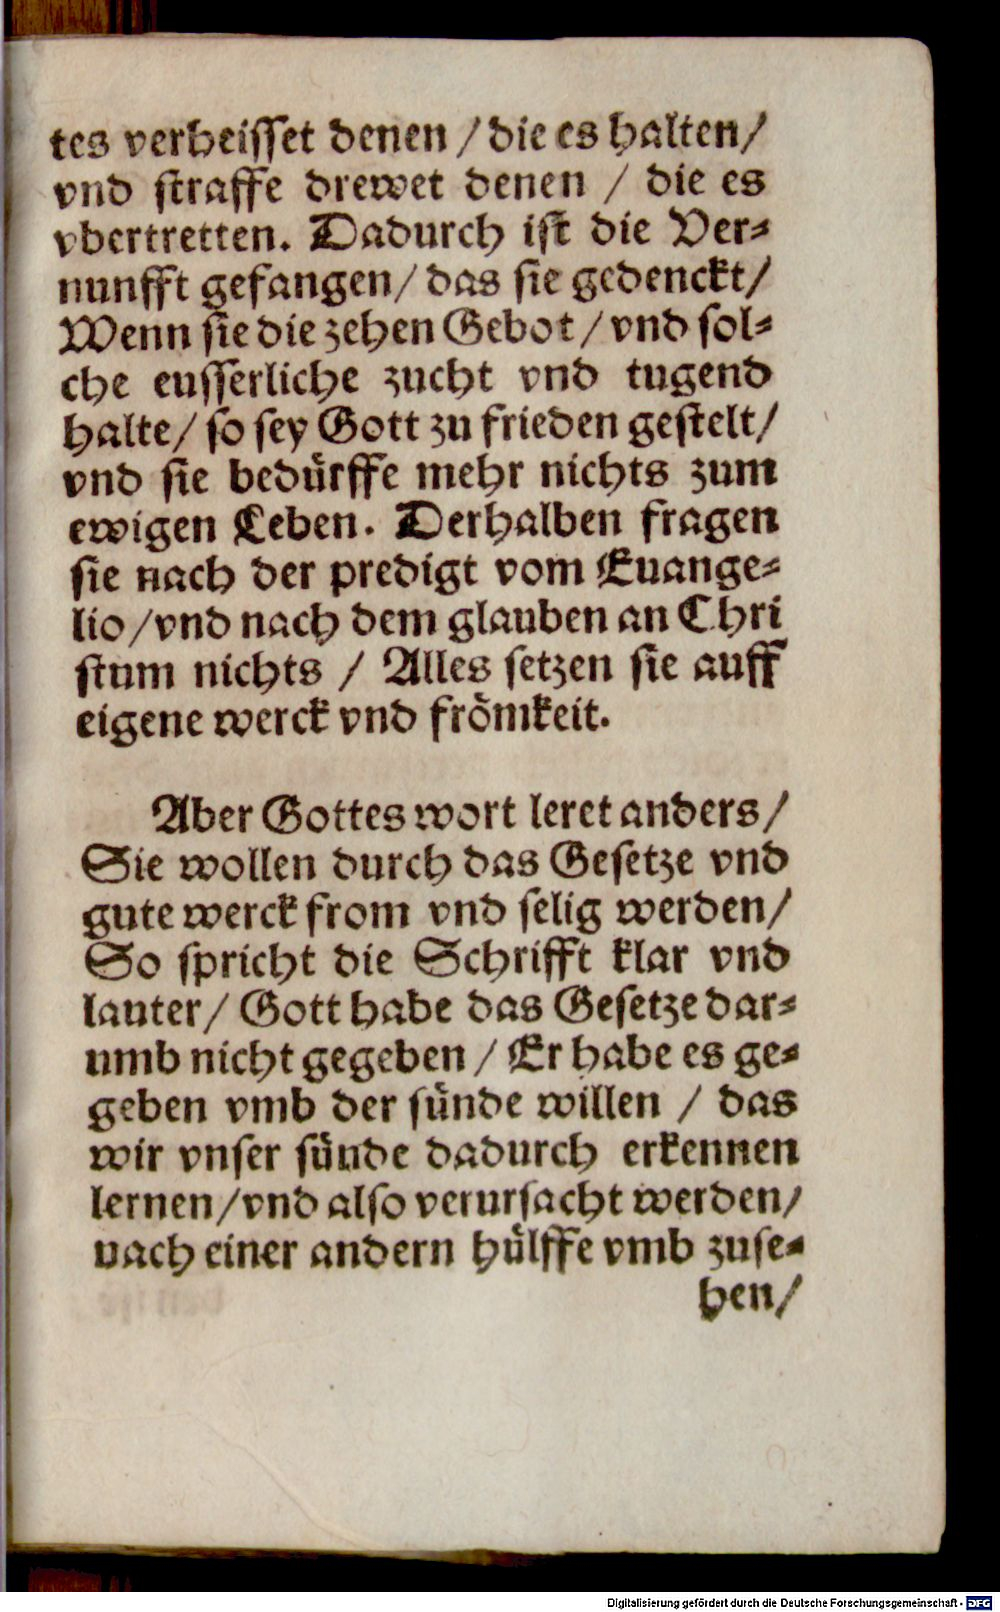 tes verheisset denen / die es halten /
vnd straffe drewet denen / die es
vbertretten. Dadurch ist die Ver-
nunfft gefangen / das sie gedenckt /
Wenn sie die zehen Gebot / vnd sol-
che eusserliche zucht vnd tugend
halte / so sey Gott zu frieden gestelt /
vnd sie bedürffe mehr nichts zum
ewigen Leben. Derhalben fragen
sie nach der predigt vom Euange-
lio / vnd nach dem glauben an Chri
stum nichts / Alles setzen sie auff
eigene werck vnd frömkeit.
Aber Gottes wort leret anders /
Sie wollen durch das Gesetze vnd
gute werck from vnd selig werden /
So spricht die Schrifft klar vnd
lauter / Gott habe das Gesetze dar-
umb nicht gegeben / Er habe es ge-
geben vmb der sünde willen / das
wir vnser sünde dadurch erkennen
lernen / vnd also verursacht werden /
nach einer andern hülffe vmb zuse-
hen /
Digitalisierung gefördert durch die Deutsche Forschungsgemeinschaft - DFG